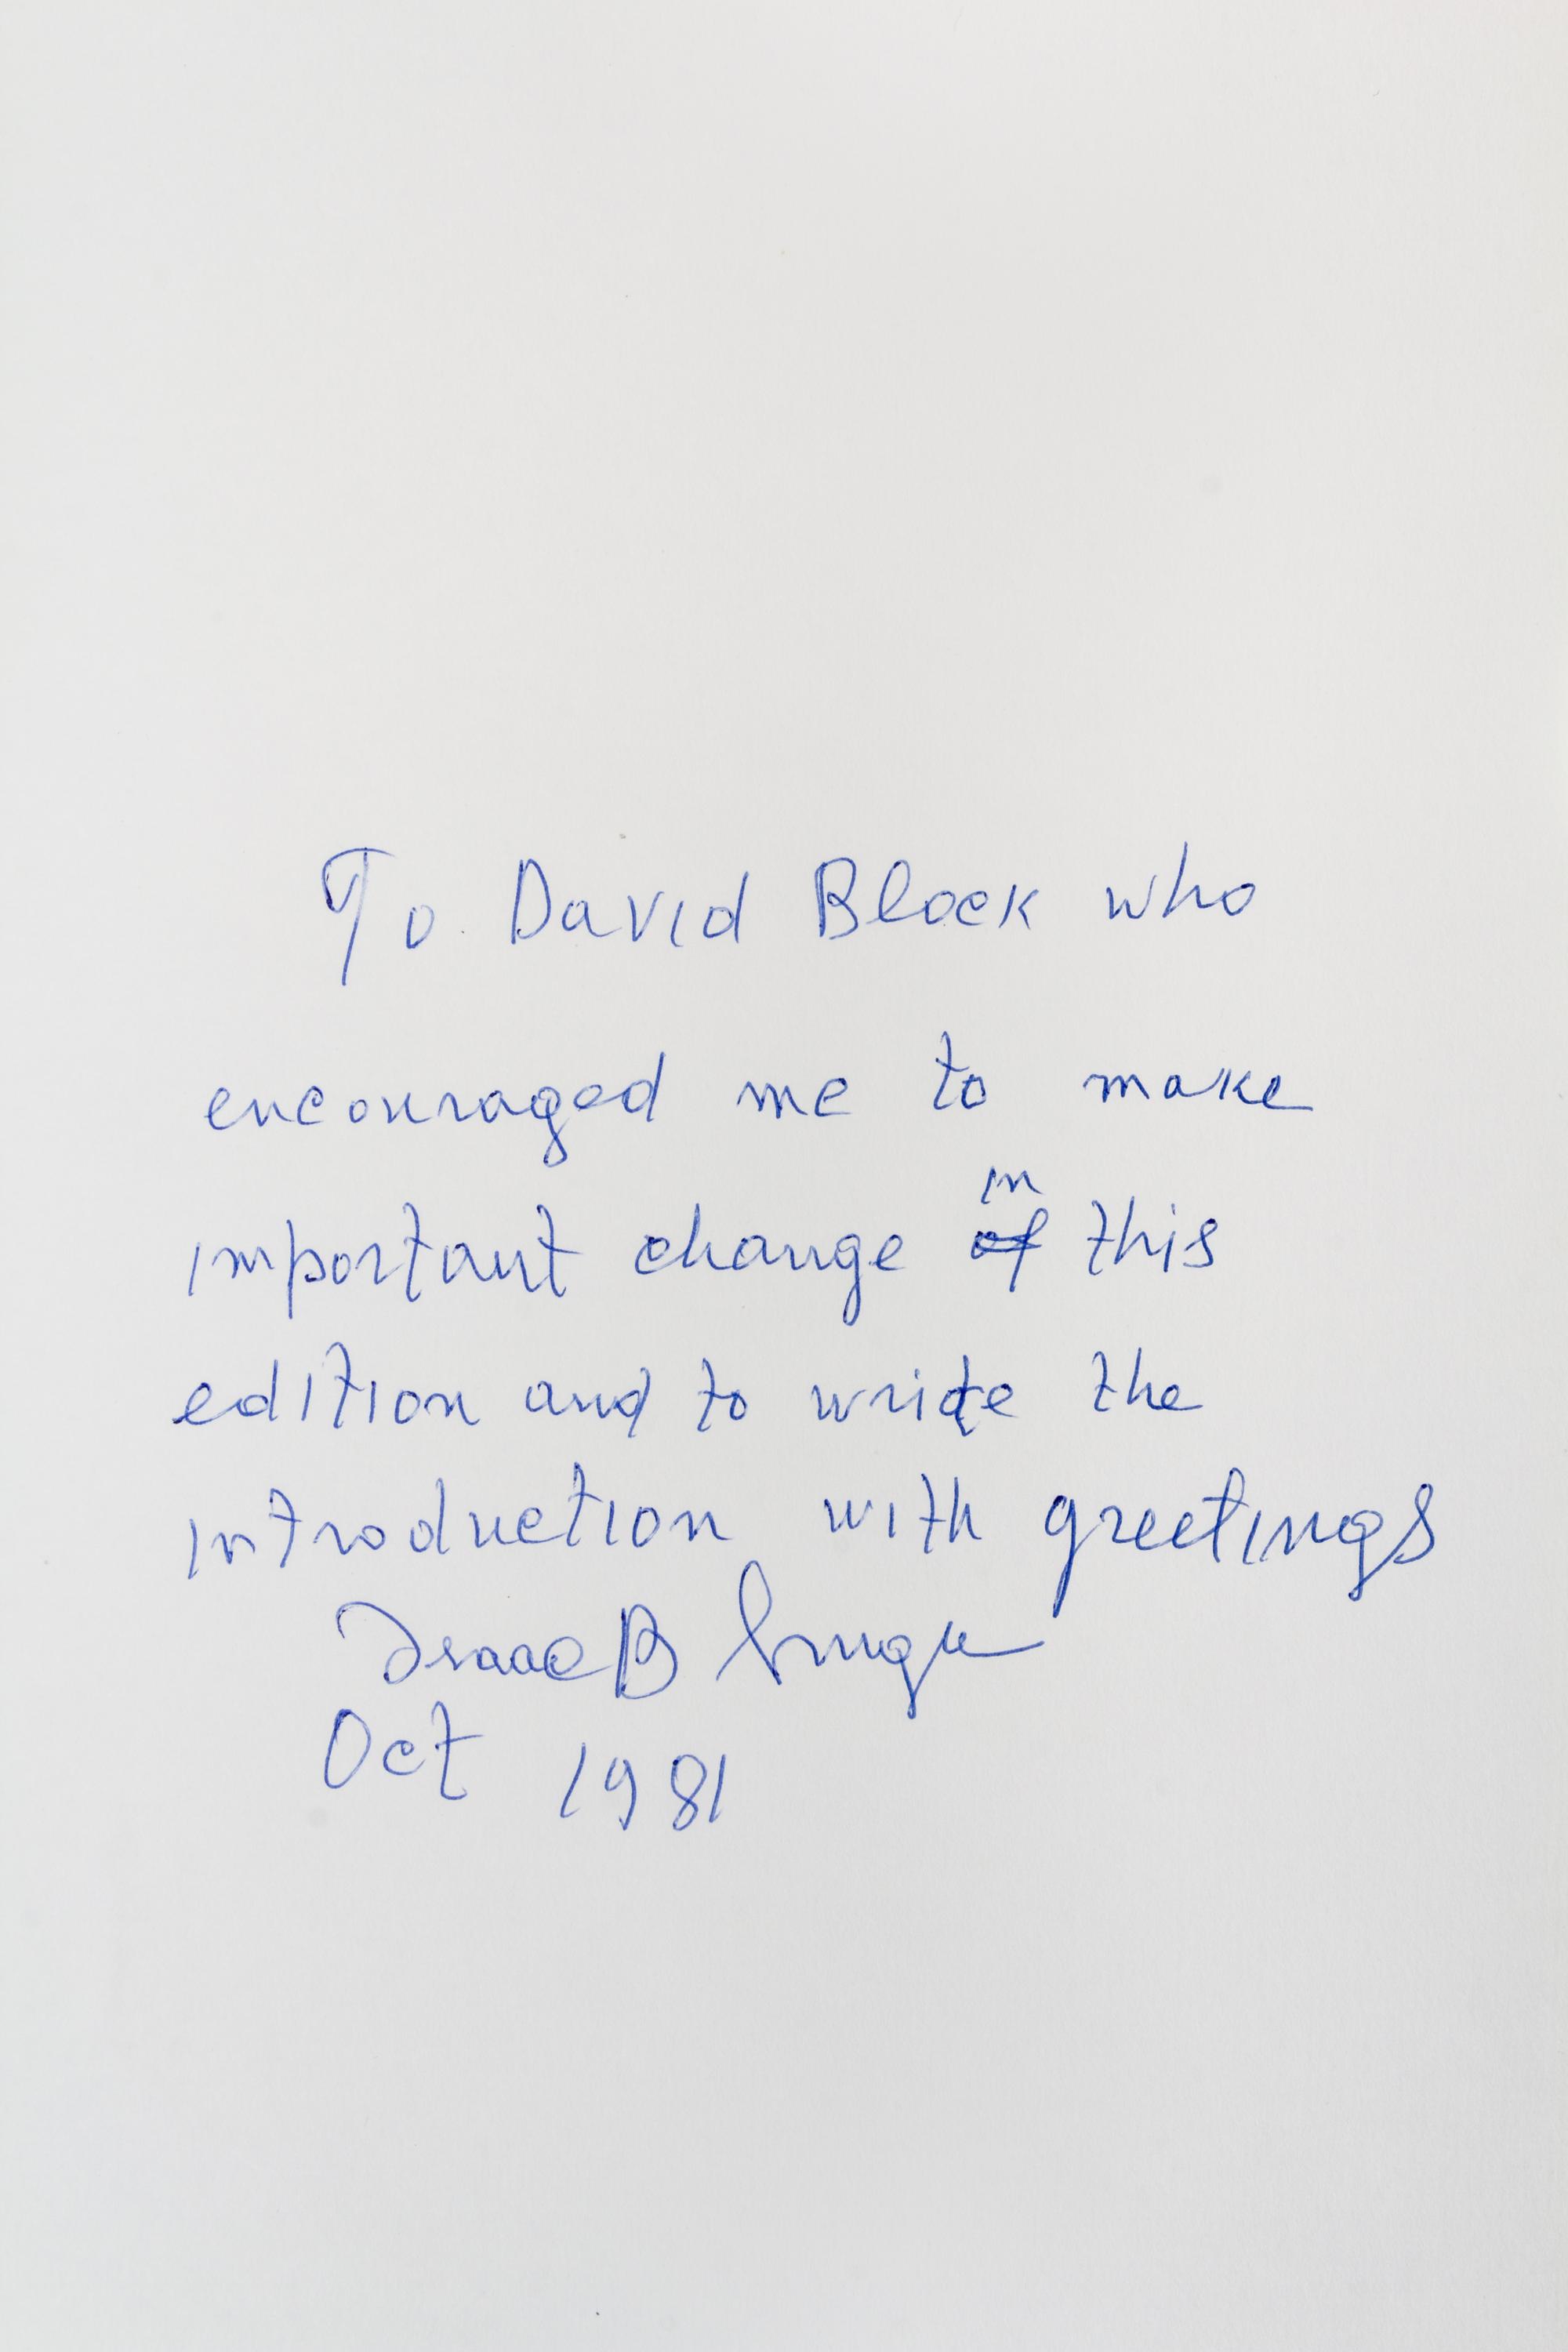 To David Block who
encouraged me to make
important change in of this
edition and to write the
introduction with greetings
Isaac B Singer
Oct 1981